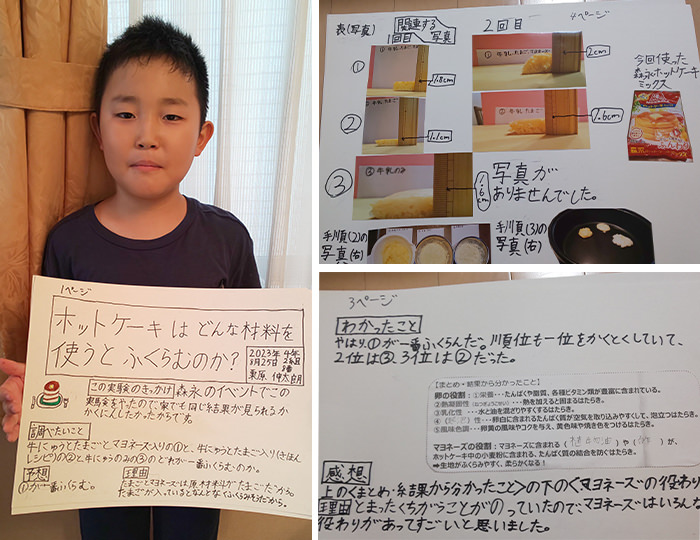 1ページ
ホットケーキはどんな材料を
使うとふくらむのか?
2023年 4年
3月25日 2組
栗原 伸太朗
この実験のきっかけ 森永のイベントでこの
実験をやったので、家でも同じ結果が見られるか
かくにんしたかったからです。
調べたいこと
牛にゅうとたまごとマヨネーズ入りの①と、牛にゅうとたまご入り(きほん
レシピ)の②と牛にゅうのみの③のどれが一番ふくらむのか。
予想
①が一番ふくらむ。
理由
たまごとマヨネーズは原材料がたまごだから。
たまごが入っているとなんとなくふくらみそうだから。
4ページ
表(写真)
関連する
写真
1回目
2回目
①
1.8cm
2cm
②
1.1cm
1.6cm
③
③牛乳のみ
1.6cm
写真が
ありませんでした。
今回使った
森永ホットケーキ
ミックス
手順(2)の
写真(右)
手順(3)の
写真(右)
3ページ
わかったこと
やはり、①が一番ふくらんだ。順位も一位をかくとくしていて、
2位は③、3位は②だった。
【まとめ・結果から分かったこと】
卵の役割:①栄養・・・たんぱくや脂質、各種ビタミン類が豊富に含まれている。
②熱凝固性(ねつぎょうこせい)・・・熱を加えると固まるはたらき。
③乳化性・・・水と油を混ざりやすくするはたらき。
性・・・卵白に含まれるたんぱく質が空気を取り込みやすくして、泡立つはたらき。
⑤風味色調・・・卵黄の風味やコクを与え、黄色味や焼き色をつけるはたらき。
マヨネーズの役割:マヨネーズに含まれる(植物油)や(酢)が、
ホットケーキ中の小麦粉に含まれる、たんぱく質の結合を防ぐはたらき。
⇒生地がふくらみやすく、柔らかくなる!
感想
上の<まとめ・結果から分かったこと>の下の<マヨネーズの役わり
理由とまったくちがうことがのっていたので、マヨネーズはいろんな
役わりがあってすごいと思いました。